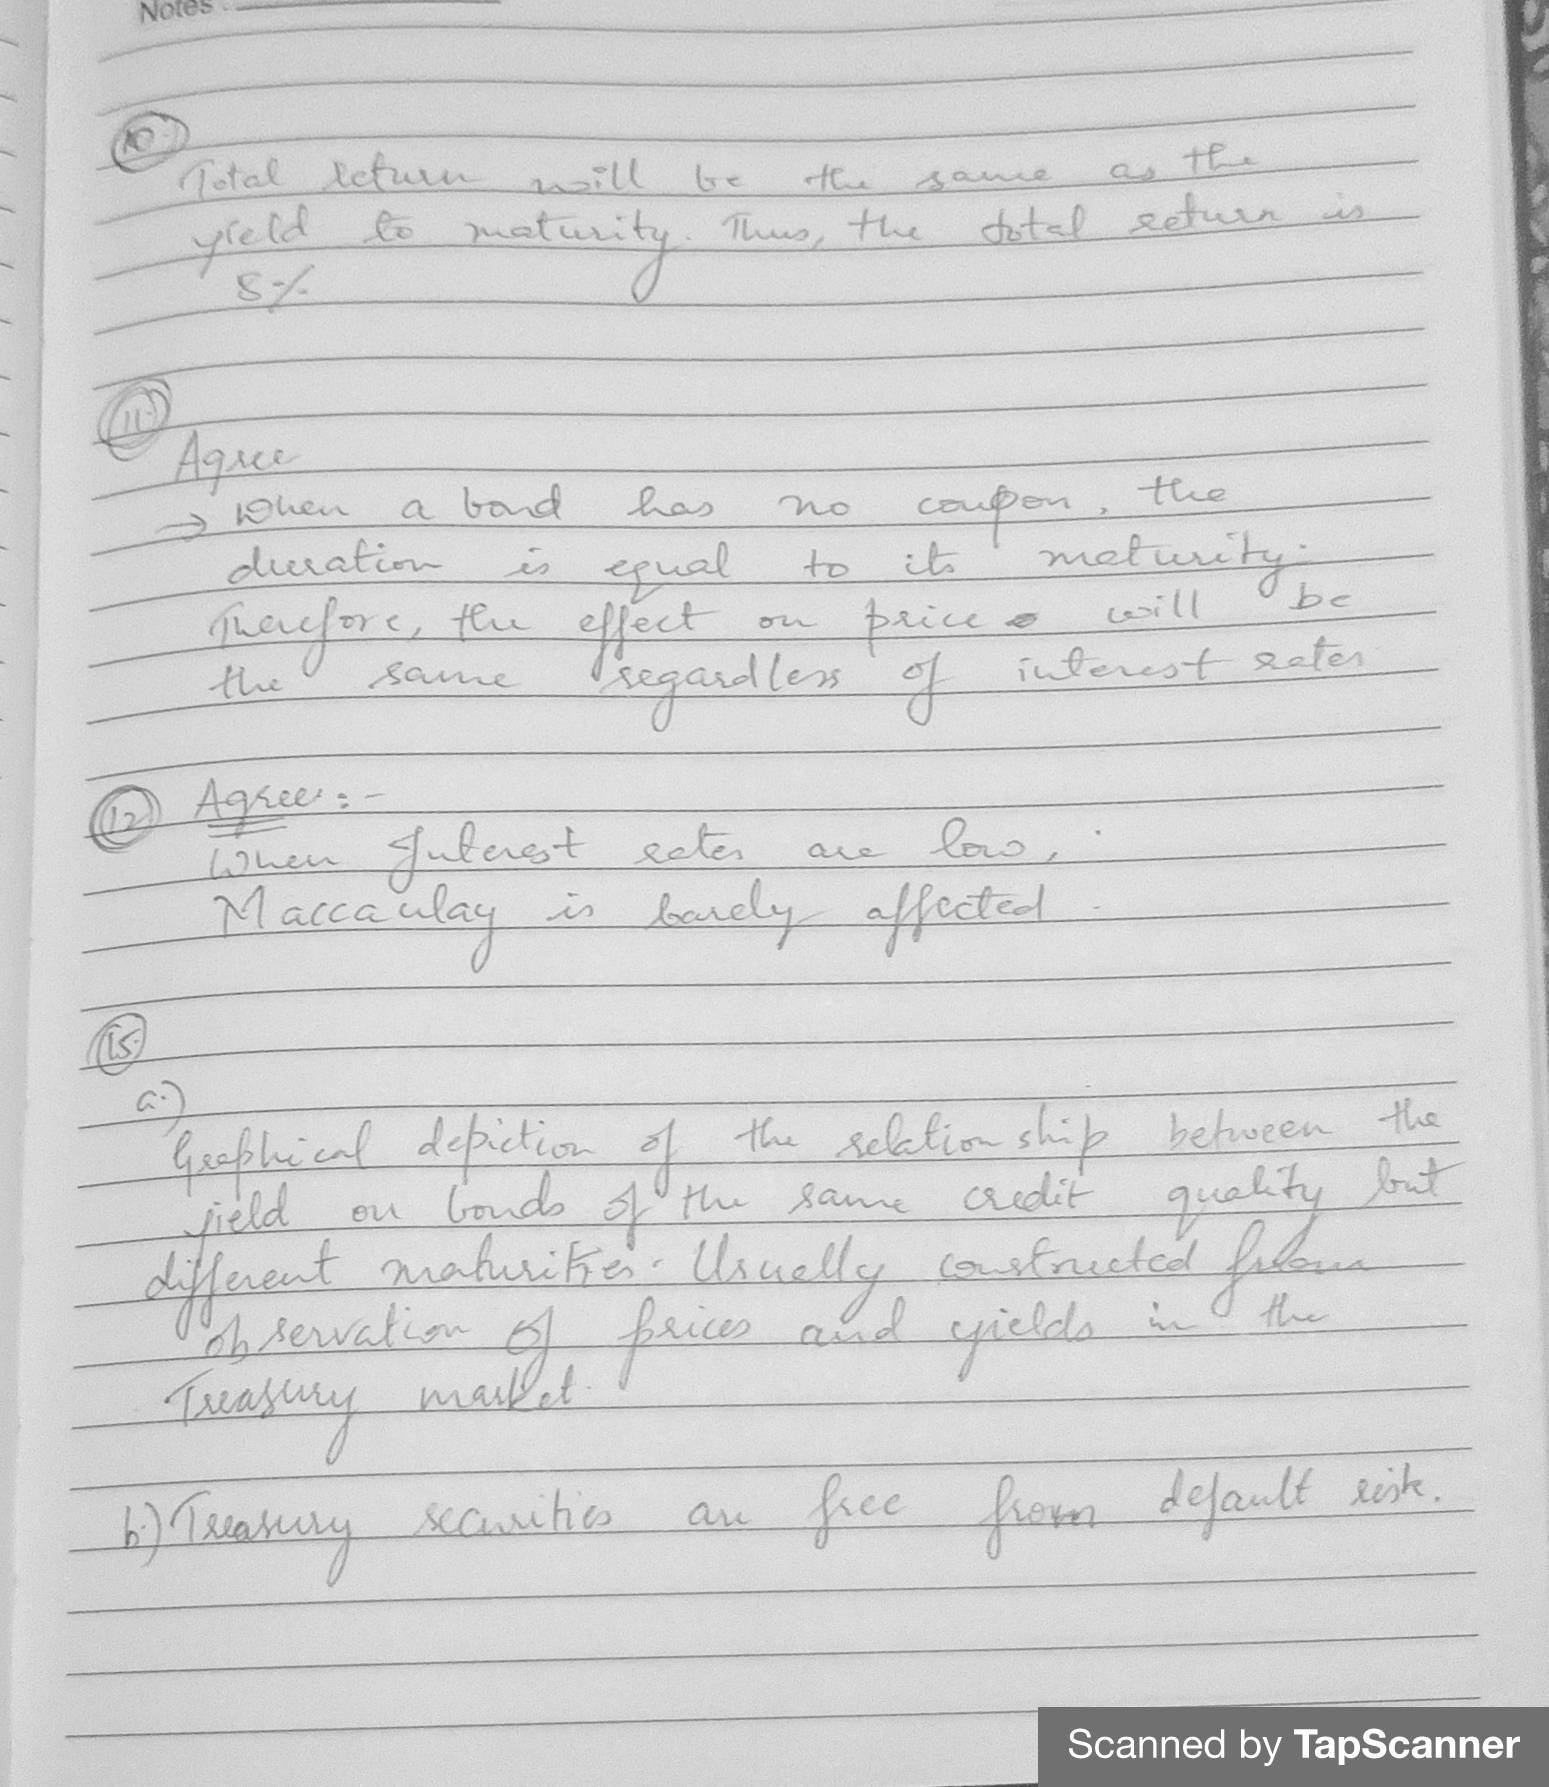 Notes
10.
Total return will be the same as the
yield to maturity. Thus, the total return is
8%
11.
Agree
⇒ When a bond has no coupon, the
duration is equal to its maturity.
Therefore, the effect on price will be
the same regardless of interest rates
12 Agree:-
When Interest rates are low,
Maccaulay is barely affected.
15.
a.)
Graphical depiction of the relationship between the
yield on bonds of the same credit quality but
different maturities. Usually constructed from
observation of prices and yields in the
Treasury market.
b.) Treasury securities are free from default risk.
Scanned by TapScanner